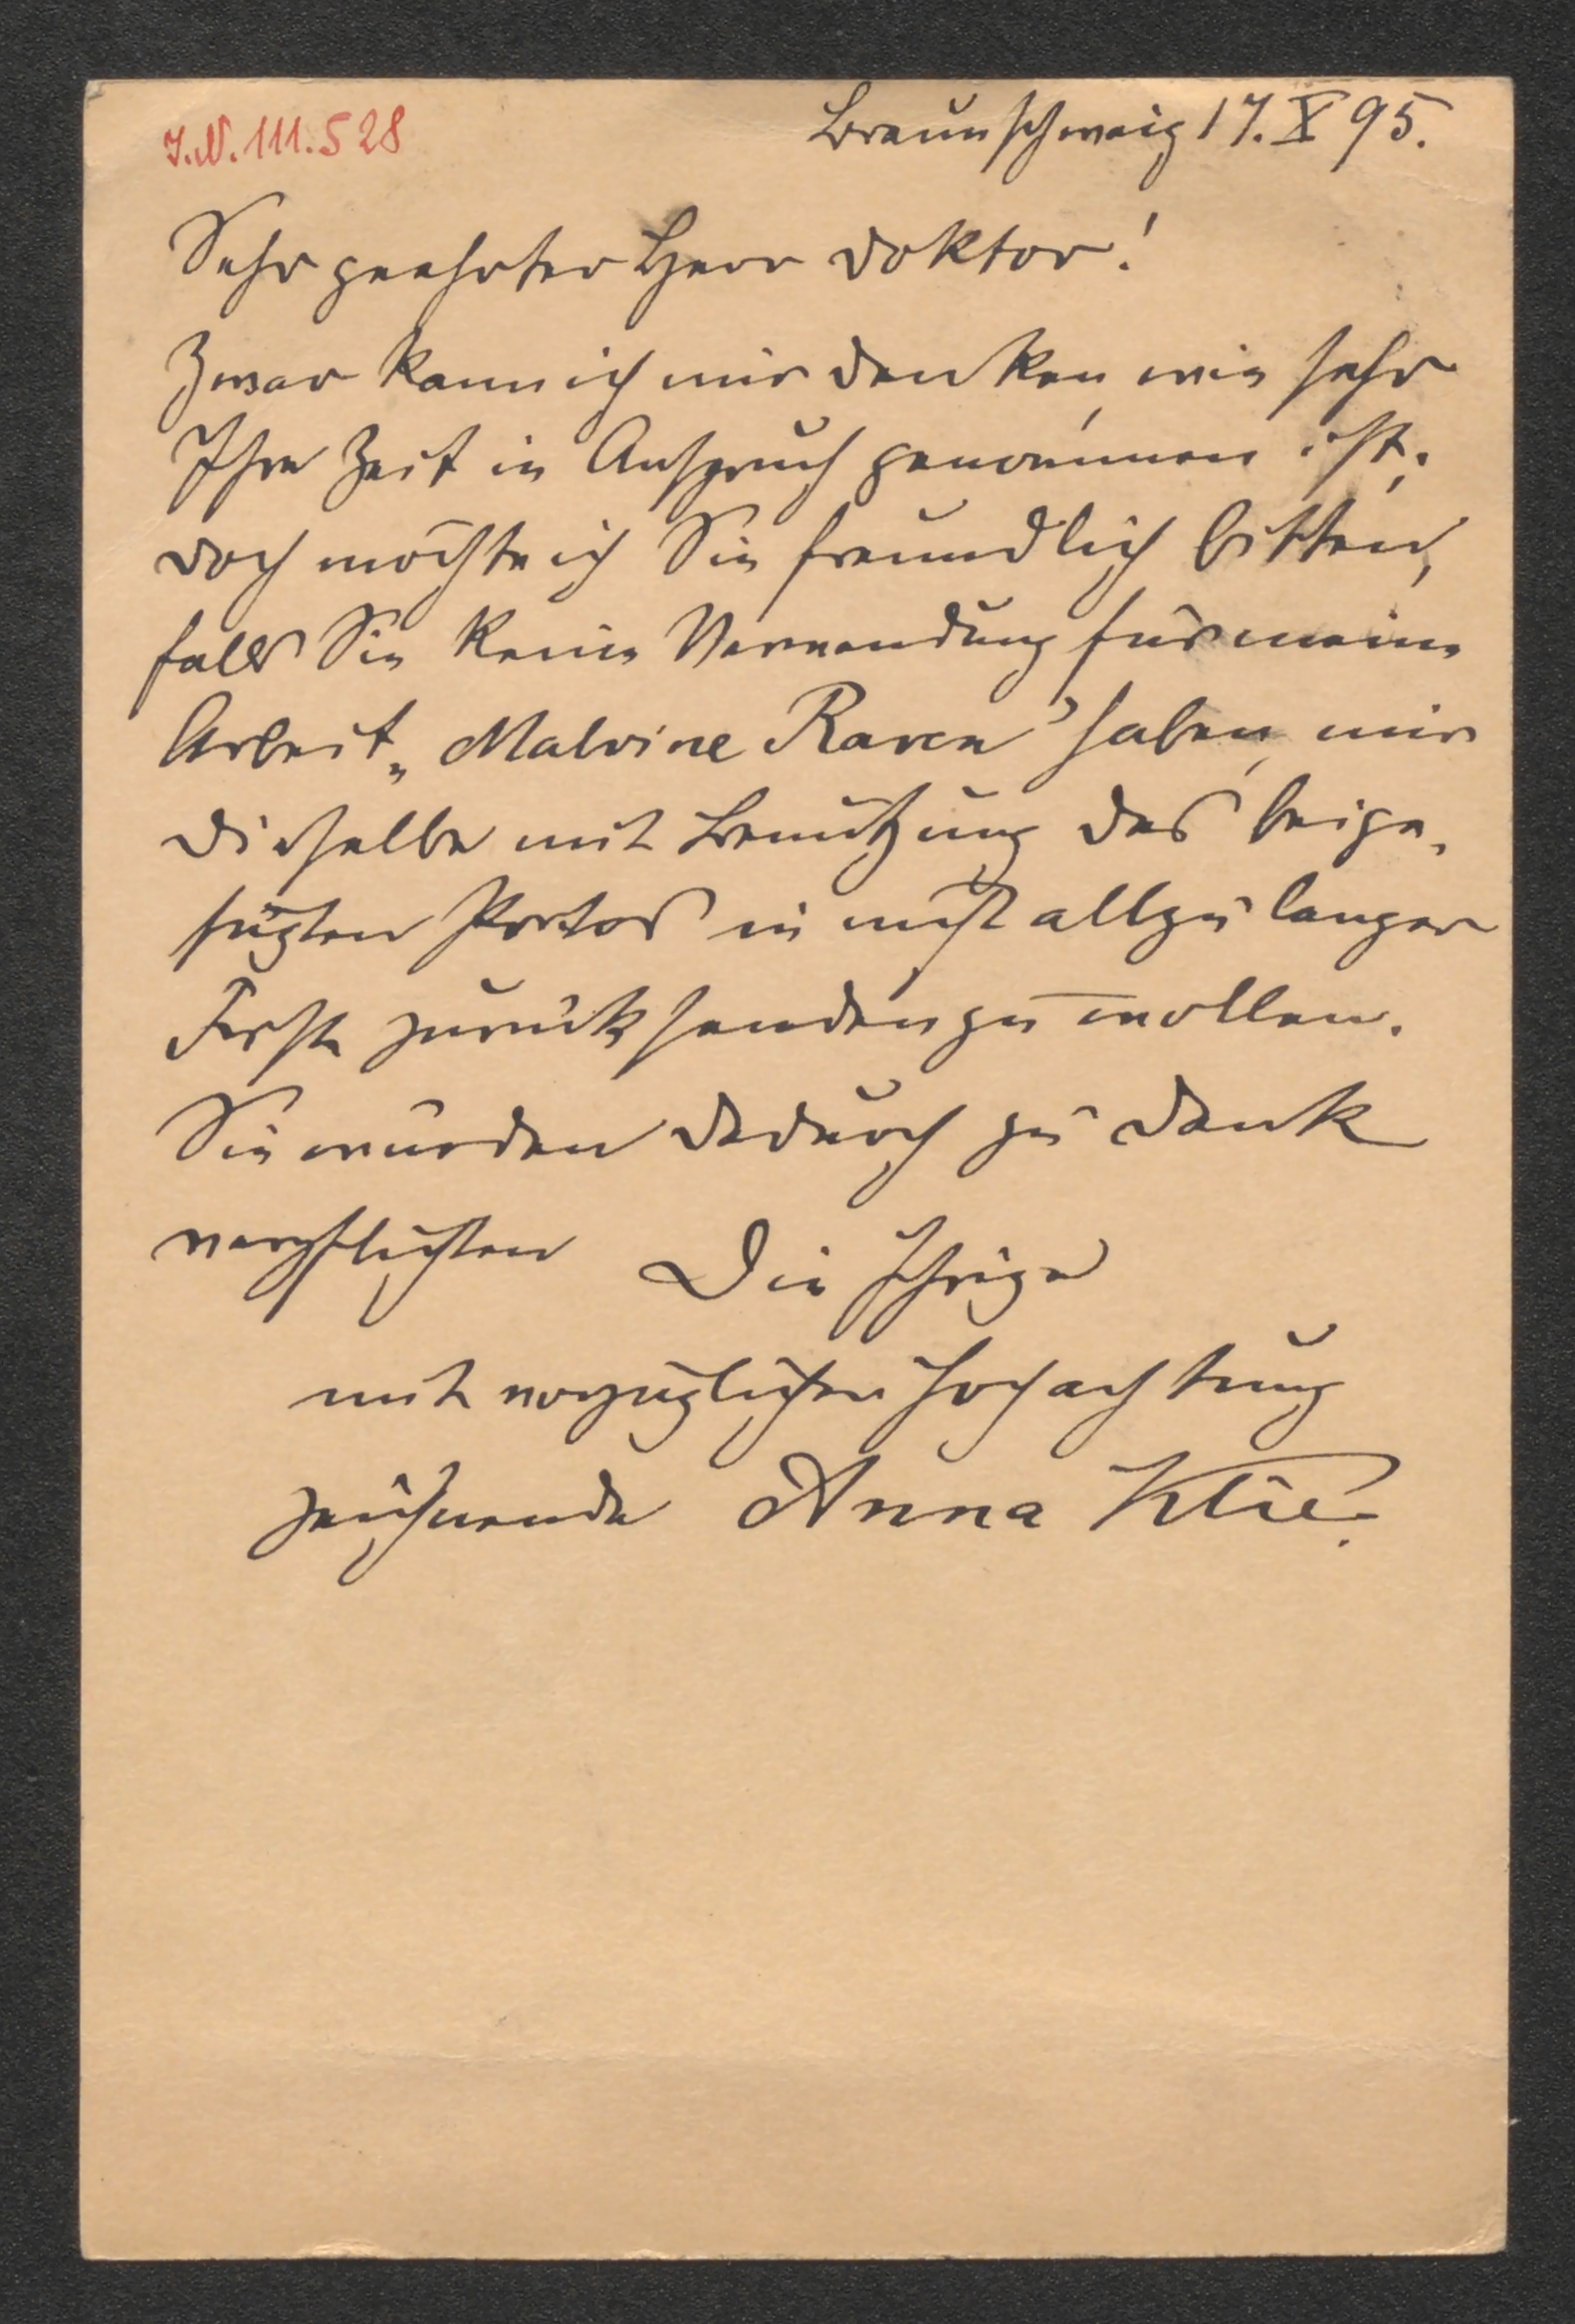 I.N. 111.528
Braunschweig 17. X 95.
Sehr geehrter Herr Doktor!
Zwar kann ich mir denken, wie sehr
Ihre Zeit in Anspruch genommen ist;
doch möchte ich Sie freundlich bitten,
falls Sie keine Verwendung für meine
Arbeit „Malvine Raven" haben, mir
dieselbe mit Benutzung des beige-
fügten Portos in nicht allzu langer
Frist zurücksenden zu wollen.
Sie würden dadurch zu Dank
verpflichten Die Ihrige
mit vorzüglicher Hochachtung
zeichnende Anna Klie.